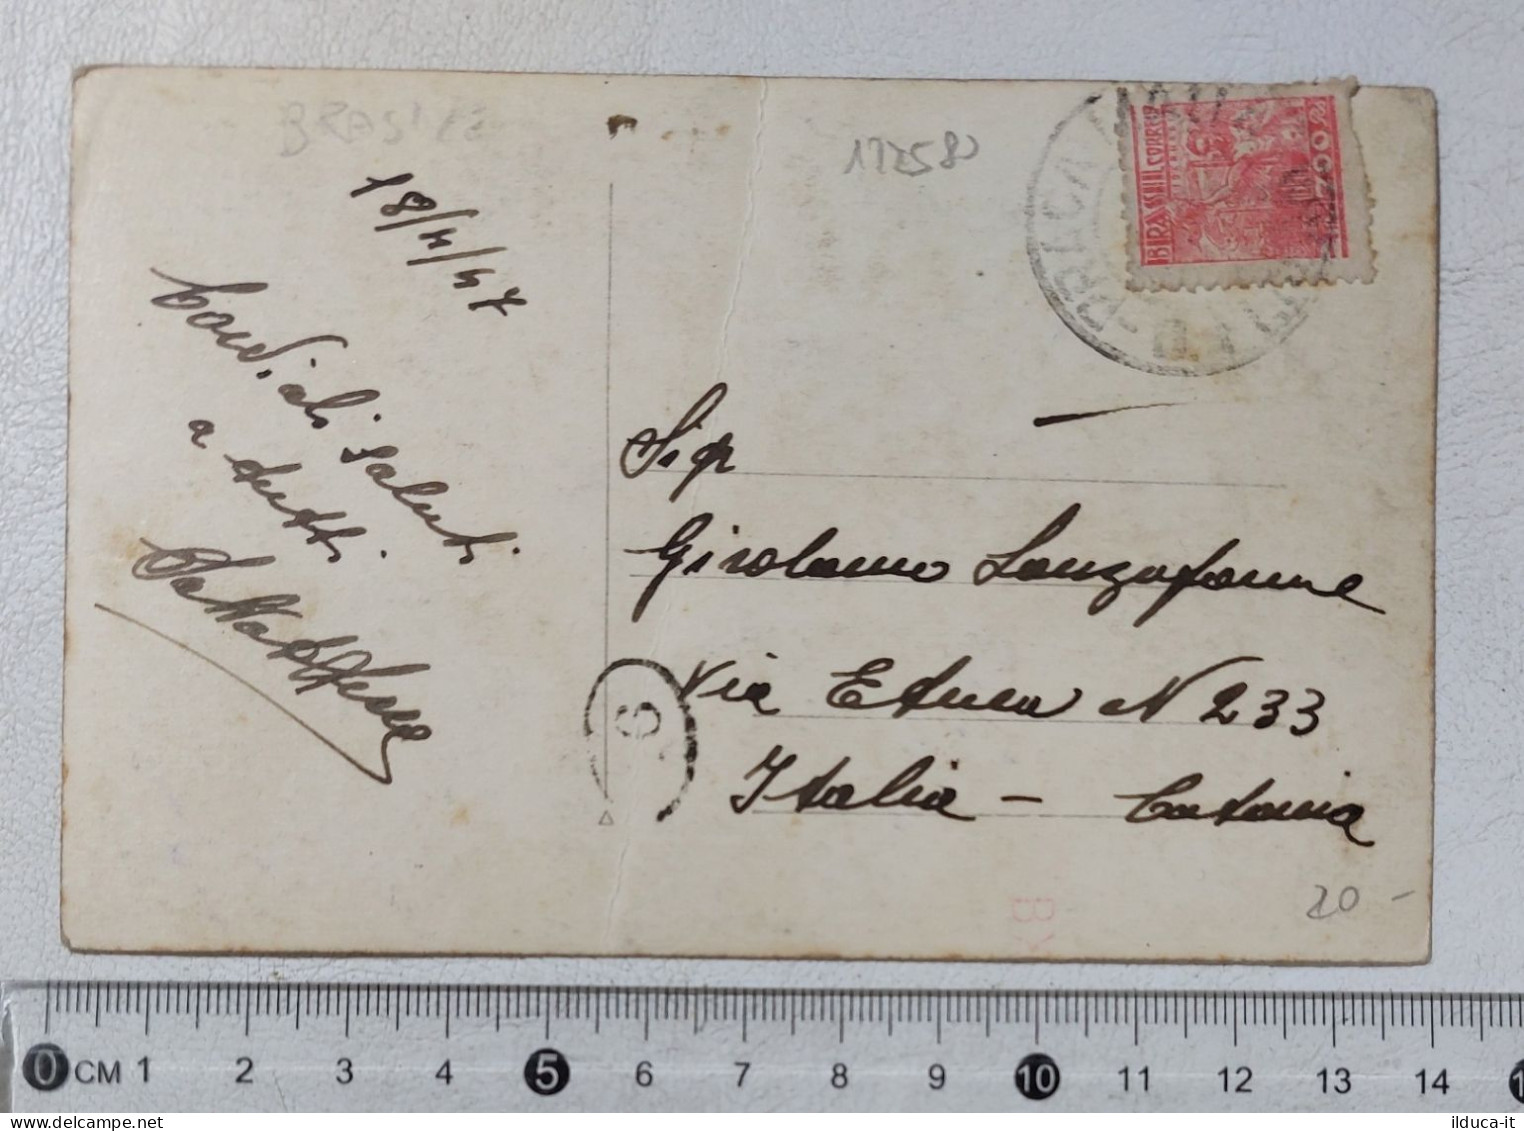 BRASILE
172580
18/4/47
Cordiali saluti
a tutti
BRASIL CORREIO
Sig
Girolamo Lanzafame
Via Etnea N 233
Italia - Catania
S
20 -
0 CM 1 2 3 4 5 6 7 8 9 10 11 12 13 14
ilduca-it